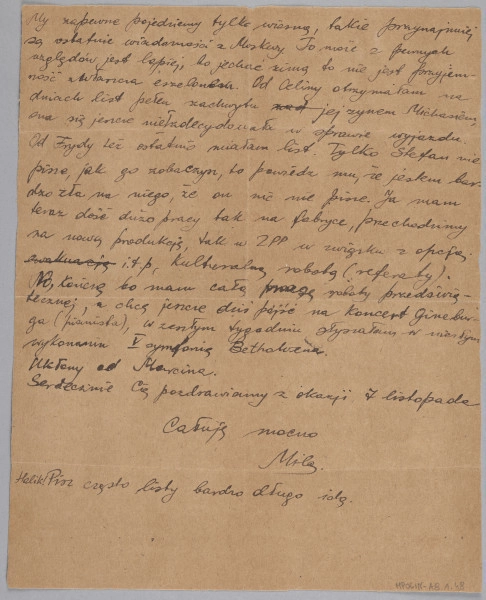 My zapewne pojedziemy tylko wiosną, takie przynajmniej
są ostatnie wiadomości z Moskwy. To może z pewnych
względów jest lepiej, bo jechać zimą to nie jest przyjem-
ność stwarza eszelonem. Od Celiny otrzymałam na
dniach list pełen zachwytu nad jej synem Michasiem,
ona się jeszcze niezadecydowała w sprawie wyjazdu.
Od Frydy też ostatnio miałam list. Tylko Stefan nie
pisze, jak go zobaczysz, to powiedz mu, że jestem bar-
dzo zła na niego, że on nic nie pisze. Ja mam
teraz dość dużo pracy tak na fabryce, przechodzimy
na nową produkcję, tak w ZPP w związku z opcją
i.t.p, kulturalną robotą (referaty).
No, kończę bo mam całą masę roboty przedświą-
tecznej, a chcę jeszcze dziś pójść na koncert Ginzbur-
ga (pianista), w zeszłym tygodniu słyszałam w
wykonaniu V symfonię Bethowena.
Ukłony od Marcina.
Serdecznie Cię pozdrawiamy z okazji 7 listopada
Całuję mocno
Mila
Halik! Pisz często listy bardzo długo idą.